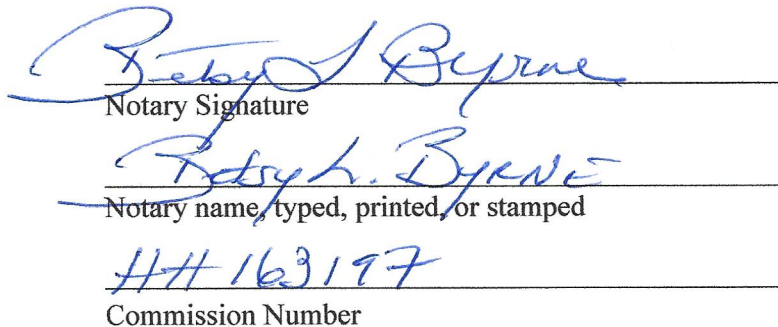 Betsy L Byrne
Notary Signature
Betsy L. Byrne
Notary name, typed, printed, or stamped
HH 163197
Commission Number